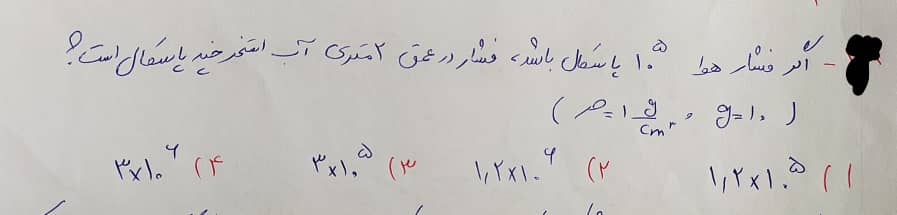 - اگر فشار هوا ۱۰^۵ پاسکال باشد، فشار در عمق ۲ متری آب استخر چند پاسکال است؟
(ρ=۱ g/cm^۳ , g=۱۰)
۱) ۱٫۲×۱۰^۵ ۲) ۱٫۲×۱۰^۶ ۳) ۳×۱۰^۵ ۴) ۳×۱۰^۶